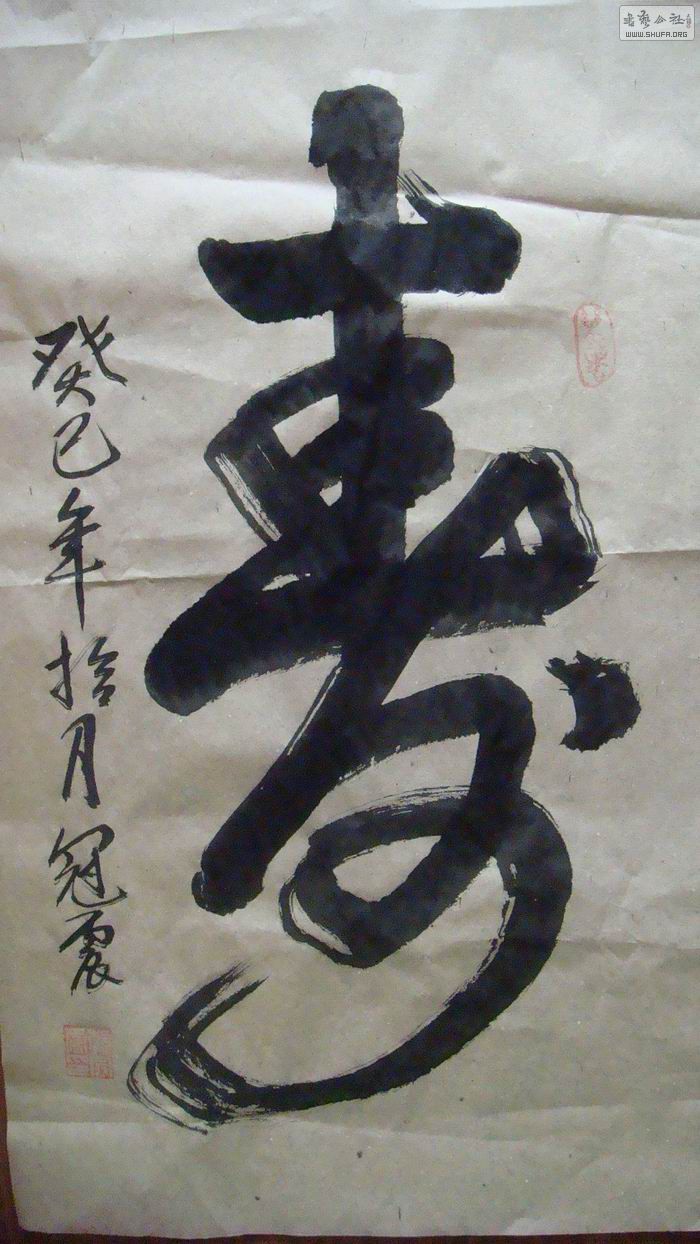 寿
癸巳年拾月冠震
书艺公社
WWW.SHUFA.ORG